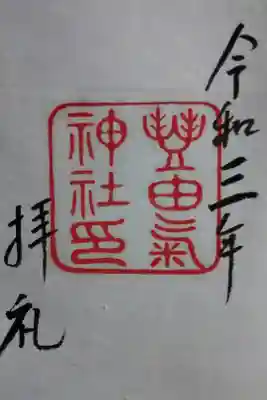 令和三年
豊由氣
神社印
拝礼